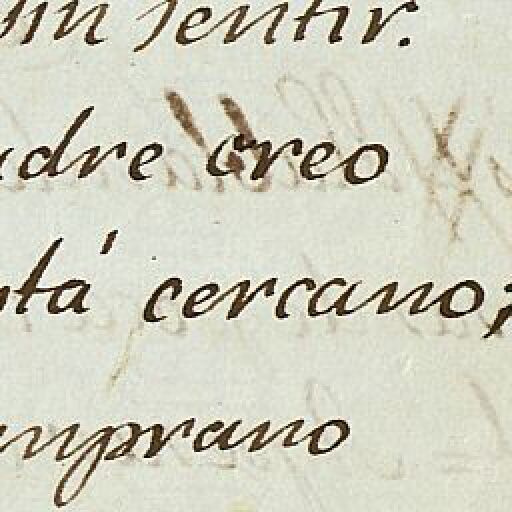 sin sentir.
adre creo
stá cercano;
emprano